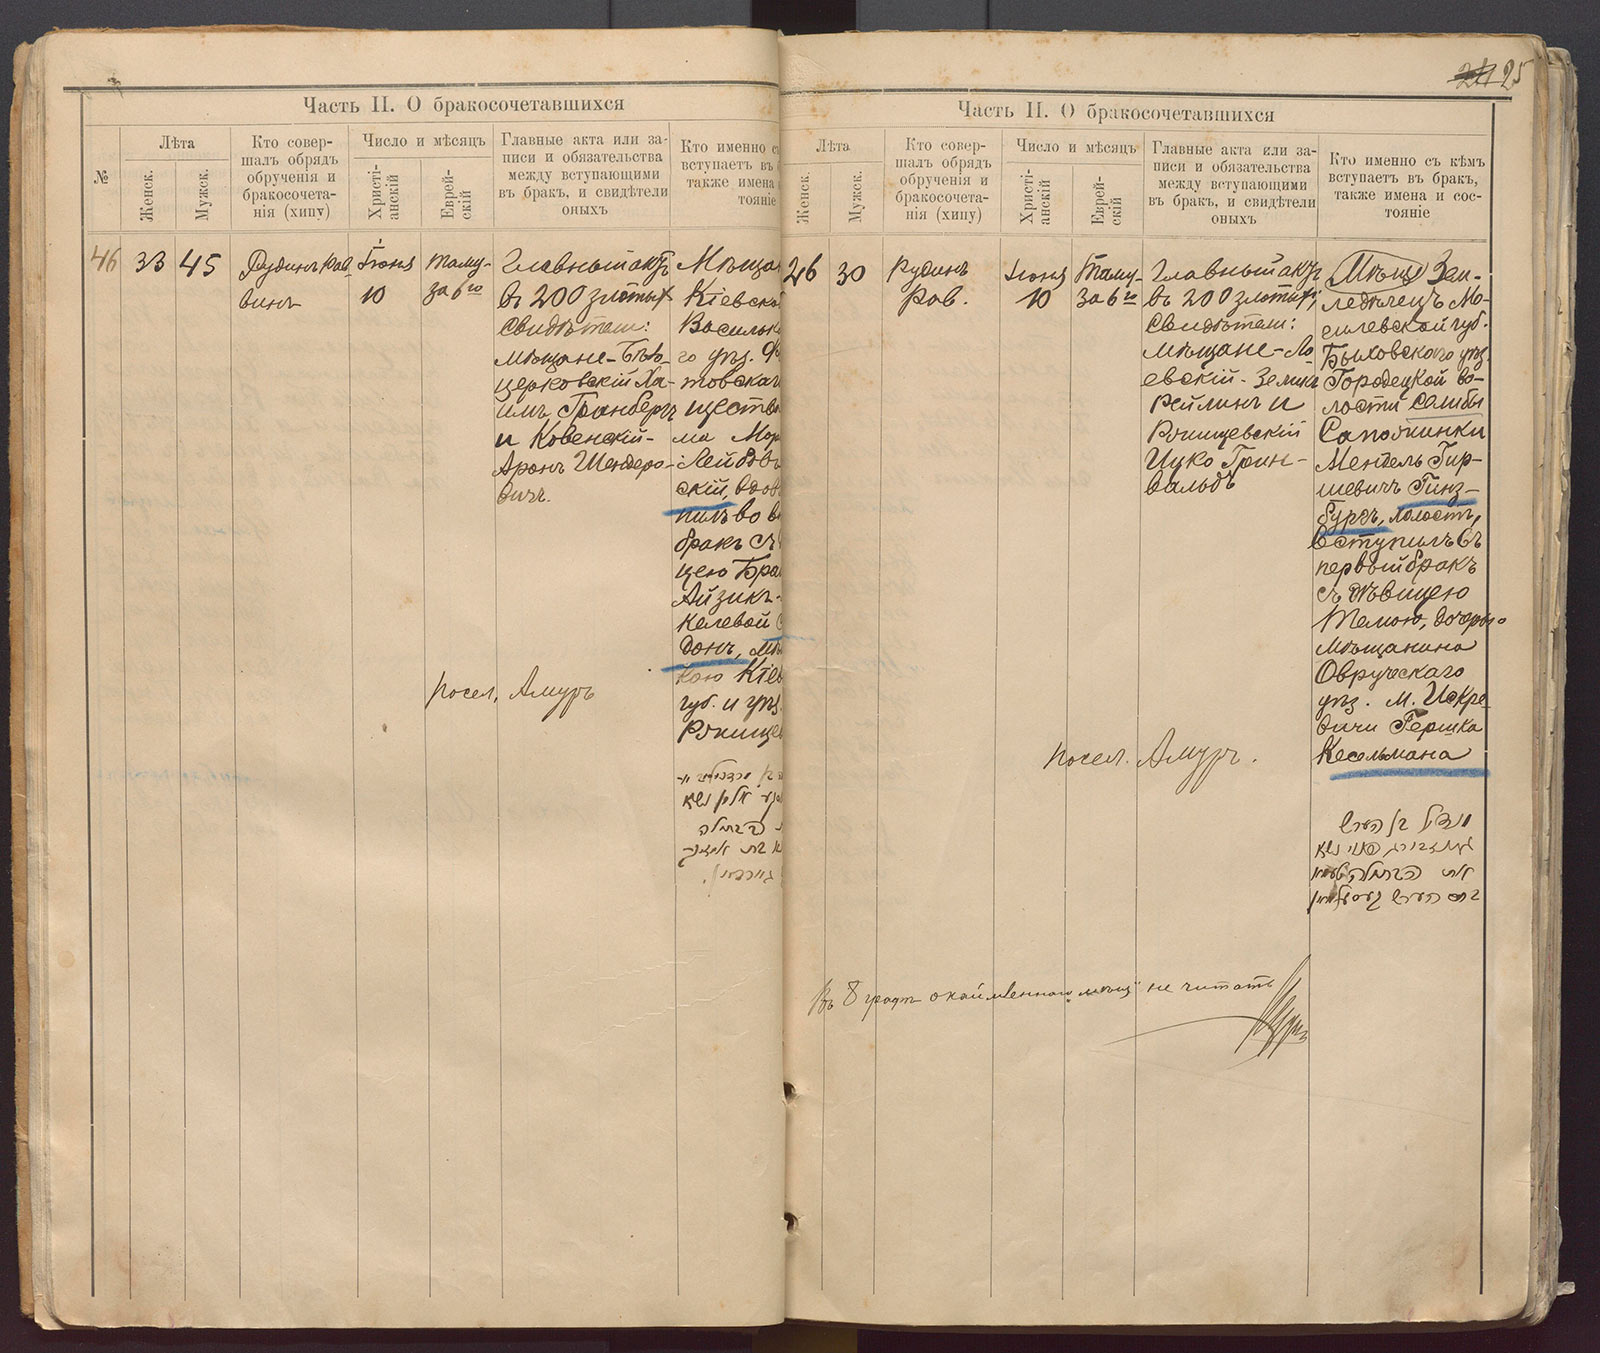 Часть II. О бракосочетавшихся
№
Лѣта
Женск.
Мужск.
Кто совер-
шалъ обрядъ
обрученія и
бракосочета-
нія (хипу)
Число и мѣсяцъ
Христі-
анскій
Еврей-
скій
Главные акта или за-
писи и обязательства
между вступающими
въ бракъ, и свидѣтели
оныхъ
Кто именно съ
вступаетъ въ
также имена
тояніе
46
33
45
Рудинъ Рав
винъ
Іюня
10
Таму-
за 6го
Главный актъ
въ 200 злотых
Свидѣтели:
мѣщане-Бѣло-
церковскій Ха-
имъ Гринбергъ
и Ковенскій-
Аронъ Шендеро-
вичъ.
Мѣща
Кіевской
Васильк
го уѣз.
товскаг
ществ
ма Мор
Лейбов
скій, вдов
пилъ во в
бракъ съ
цею Бра
Айзикъ-
келевой
донъ, мѣ
кою Кіев
губ. и уѣз.
Ржищев
посел. Амуръ
24 25
Часть II. О бракосочетавшихся
Лѣта
Женск.
Мужск.
Кто совер-
шалъ обрядъ
обрученія и
бракосочета-
нія (хипу)
Число и мѣсяцъ
Христі-
анскій
Еврей-
скій
Главные акта или за-
писи и обязательства
между вступающими
въ бракъ, и свидѣтели
оныхъ
Кто именно съ кѣмъ
вступаетъ въ бракъ,
также имена и сос-
тояніе
26
30
Рудинъ
Рав.
Іюня
10
Таму-
за 6го
Главный актъ
въ 200 злотых;
Свидѣтели:
мѣщане-Ло-
евскій-Зеликъ
Рейлинъ и
Ржищевскій
Ицко Грин-
вальдъ
Мѣщ Зем-
ледѣлецъ Мо-
гилевской губ.
Быховскаго уѣз.
Городецкой во-
лости селибы
Сапожинки
Мендель Гир-
шевичъ Гинз-
бургъ, холостъ,
вступилъ въ
первый бракъ
съ дѣвицею
Темою, дочерью
мѣщанина
Овручскаго
уѣз. м. Искро-
вичи Гершка
Кесельмана
посел. Амуръ.
מענדיל בן הערש
גינזבורג פנוי נשא
את הבתולה טעמא
בת הערש קעסעלמאן
Въ 8 графѣ окаймленнаго "мѣщ" не читать